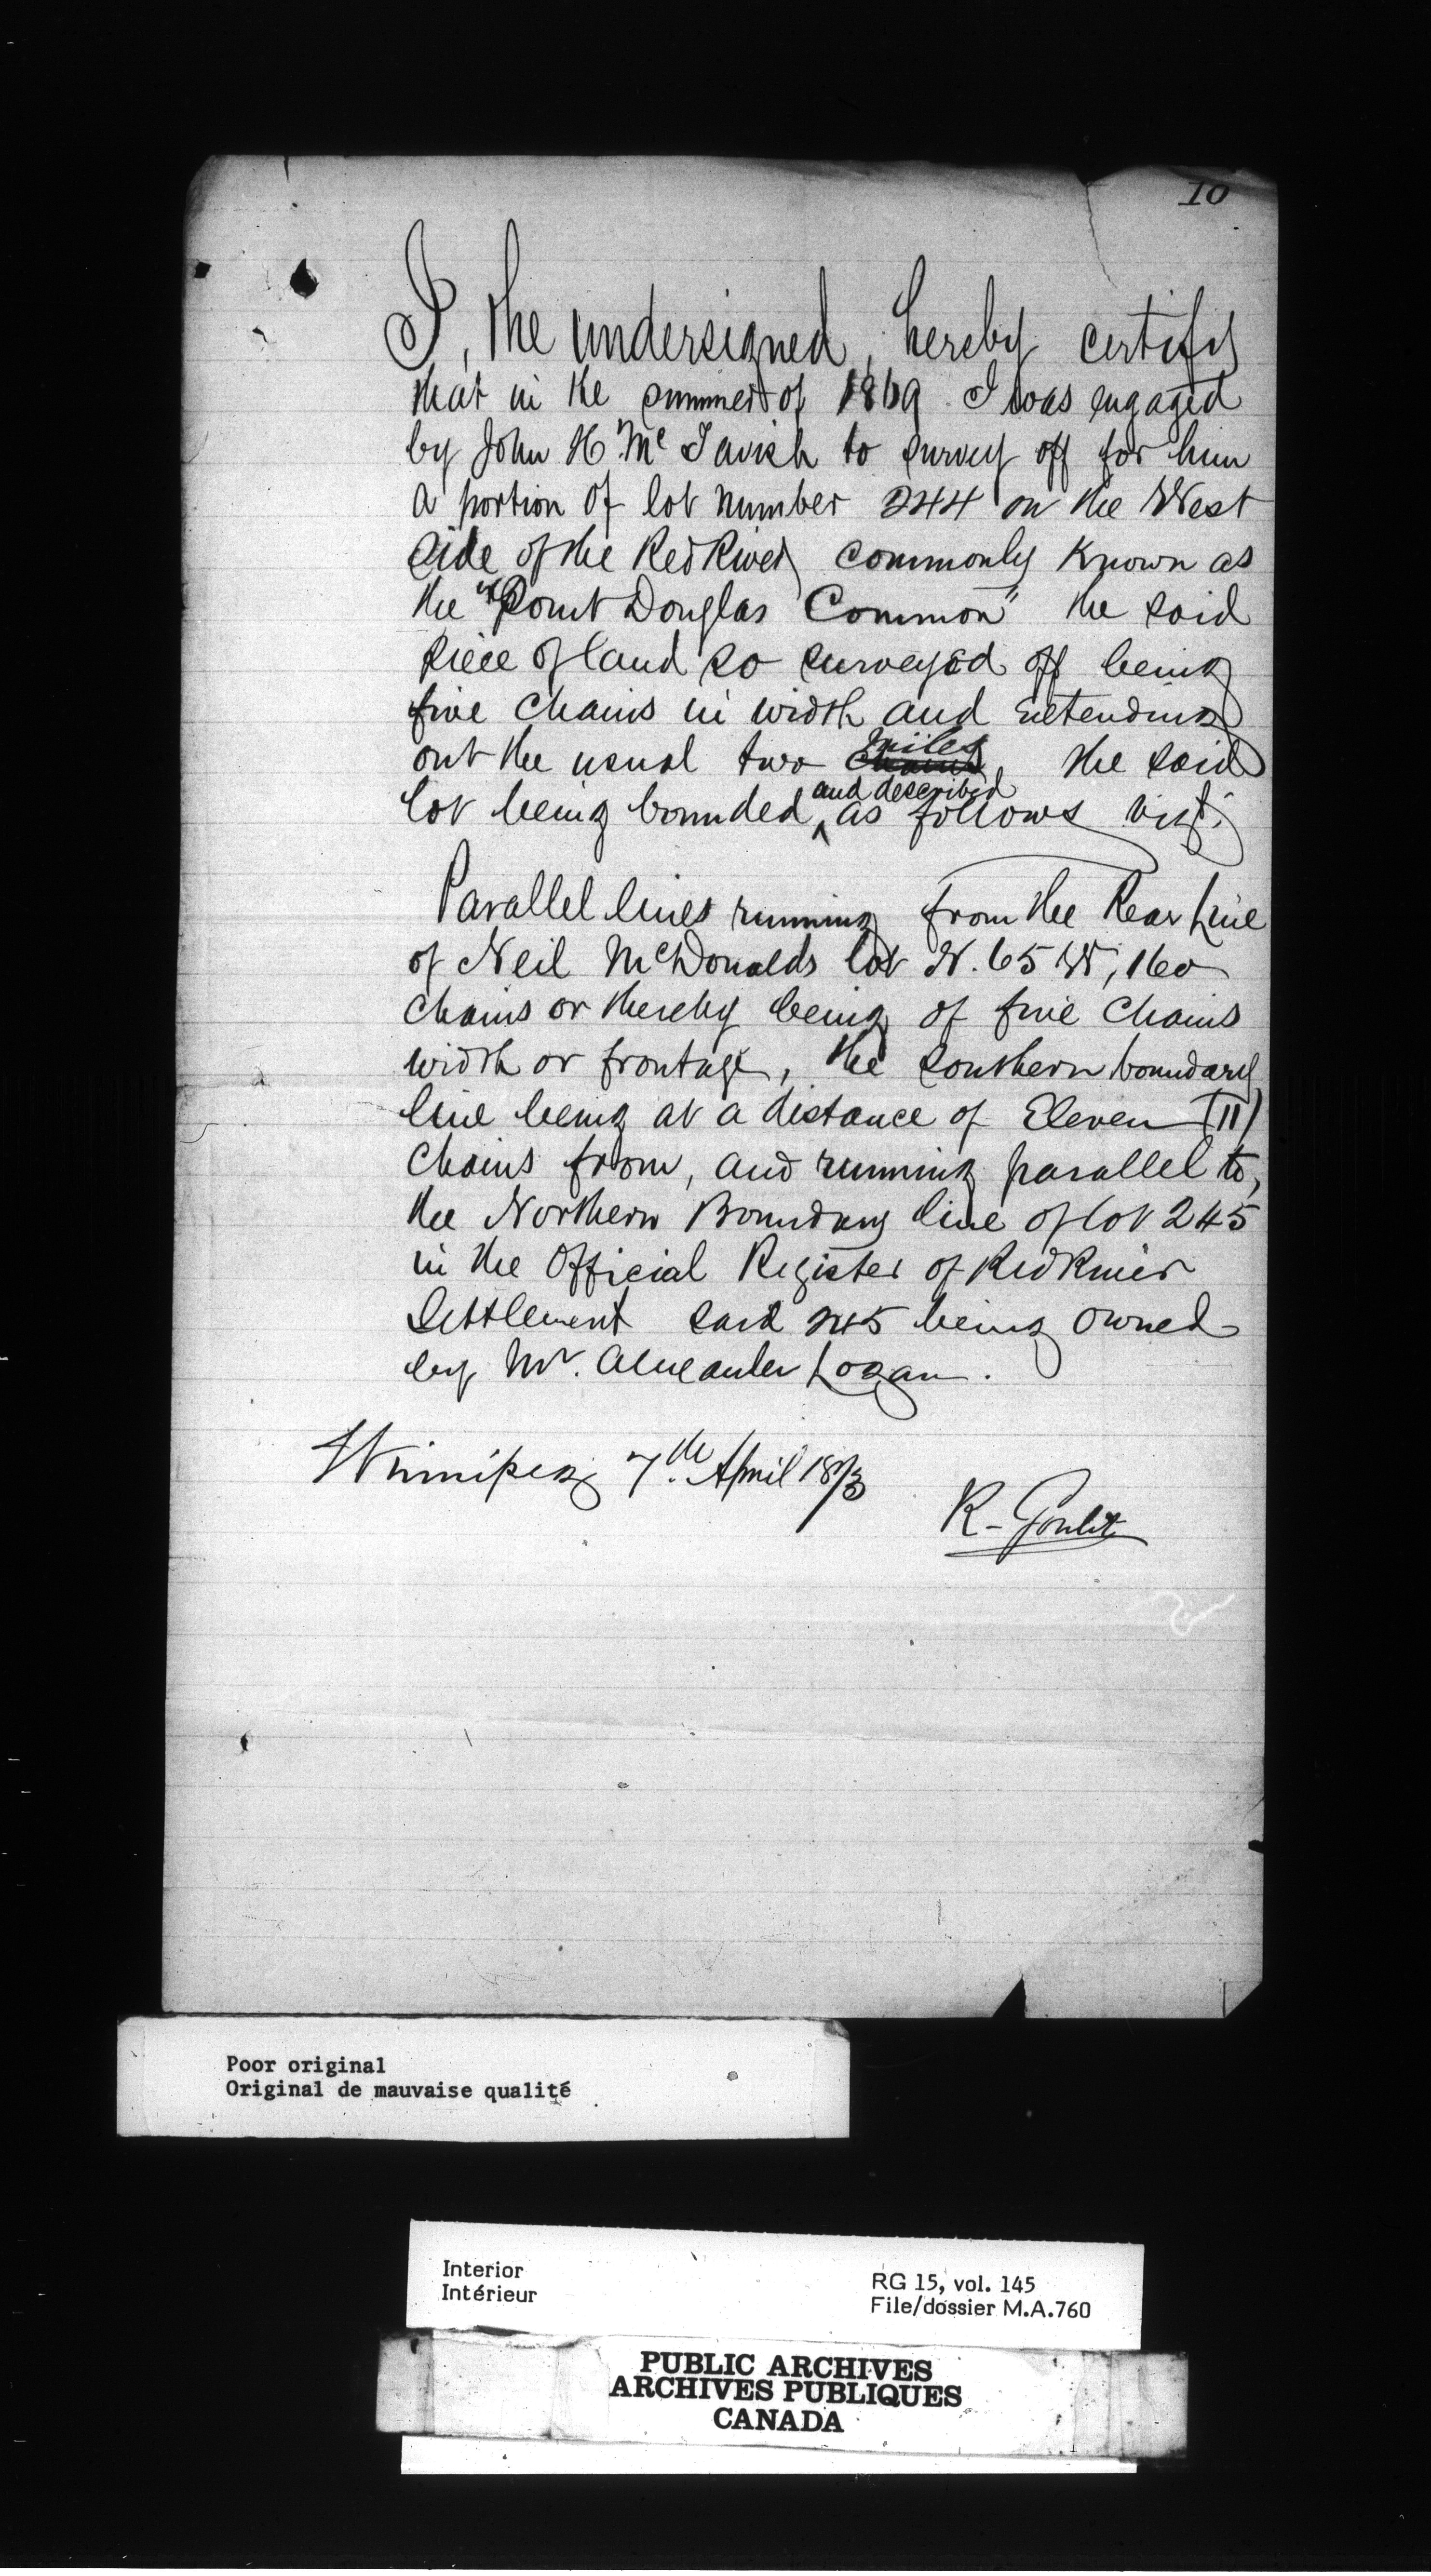 10
I, the undersigned, hereby certify
that in the summer of 1869 I was engaged
by John H. McTavish to survey off for him
a portion of lot number 244 on the West
side of the Red River commonly known as
the "Point Douglas Common" the said
piece of land so surveyed off being
five chains in width and extending
out the usual two chains miles, the said
lot being bounded and described as follows viz;
Parallel lines running from the Rear Line
of Neil McDonalds lot N. 65 W, 160
chains or thereby being of five chains
width or frontage, the southern boundary
line being at a distance of Eleven (11)
chains from, and running parallel to,
the Northern Boundary line of lot 245
in the Official Register of Red River
Settlement said 245 being owned
by Mr. Alexander Logan.
Winnipeg 7th. April 1873
R- Goulet
Poor original
Original de mauvaise qualité
Interior
Intérieur
RG 15, vol. 145
File/dossier M.A.760
PUBLIC ARCHIVES
ARCHIVES PUBLIQUES
CANADA